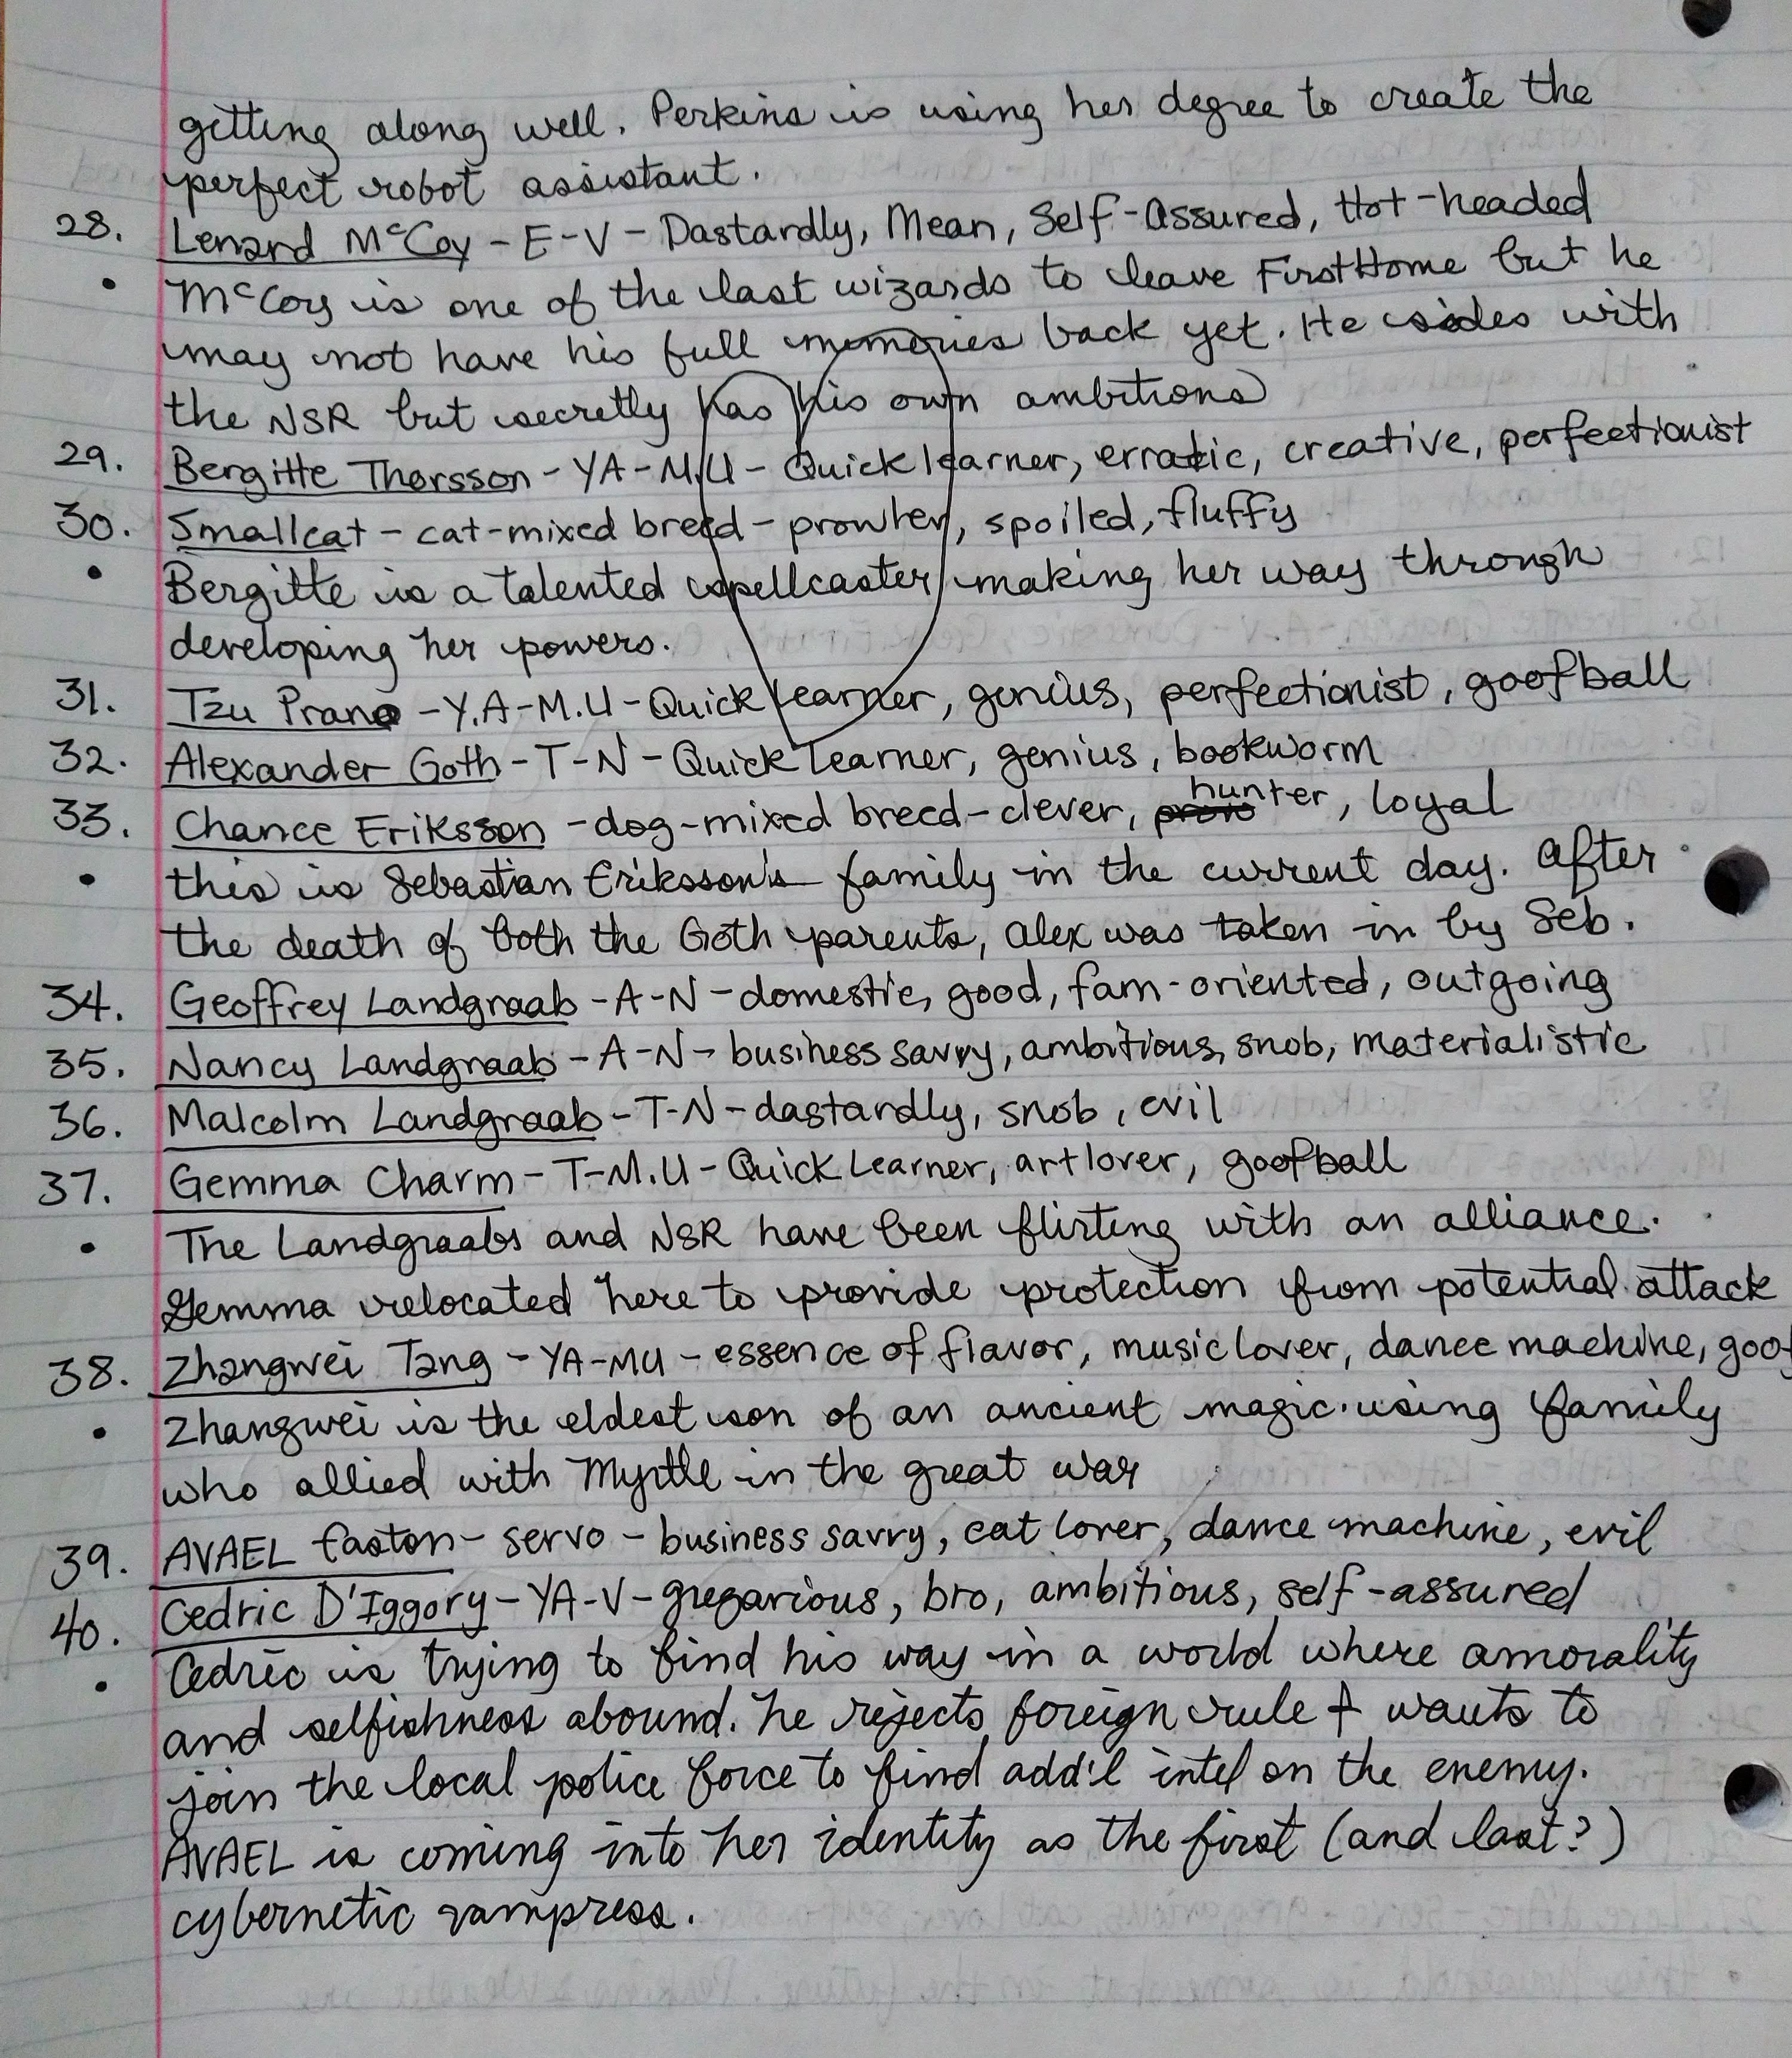 getting along well. Perkins is using her degree to create the
perfect robot assistant.
28. Lenard McCoy - E-V - Dastardly, Mean, Self-Assured, Hot-headed
• McCoy is one of the last wizards to leave FirstHome but he
may not have his full memories back yet. He sides with
the NSR but secretly has his own ambitions
29. Bergitte Thorsson - YA-M.U - Quick learner, erratic, creative, perfectionist
30. Smallcat - cat-mixed breed - prowler, spoiled, fluffy
• Bergitte is a talented spellcaster making her way through
developing her powers.
31. Tzu Prano - Y.A-M.U - Quick learner, genius, perfectionist, goofball
32. Alexander Goth - T-N - Quick Learner, genius, bookworm
33. Chance Eriksson - dog-mixed breed - clever, hunter, loyal
• this is Sebastian Eriksson's family in the current day. After
the death of both the Goth parents, Alex was taken in by Seb.
34. Geoffrey Landgraab - A-N - domestic, good, fam-oriented, outgoing
35. Nancy Landgraab - A-N - business savvy, ambitious, snob, materialistic
36. Malcolm Landgraab - T-N - dastardly, snob, evil
37. Gemma Charm - T-M.U - Quick Learner, art lover, goofball
• The Landgraabs and NSR have been flirting with an alliance.
Gemma relocated here to provide protection from potential attack
38. Zhangwei Tang - YA-MU - essence of flavor, music lover, dance machine, goof
• Zhangwei is the eldest son of an ancient magic-using family
who allied with Myrtle in the great war
39. AVAEL Easton - servo - business savvy, cat lover, dance machine, evil
40. Cedric D'Iggory - YA-V - gregarious, bro, ambitious, self-assured
• Cedric is trying to find his way in a world where amorality
and selfishness abound. he rejects foreign rule + wants to
join the local police force to find add'l intel on the enemy.
AVAEL is coming into her identity as the first (and last?)
cybernetic vampress.